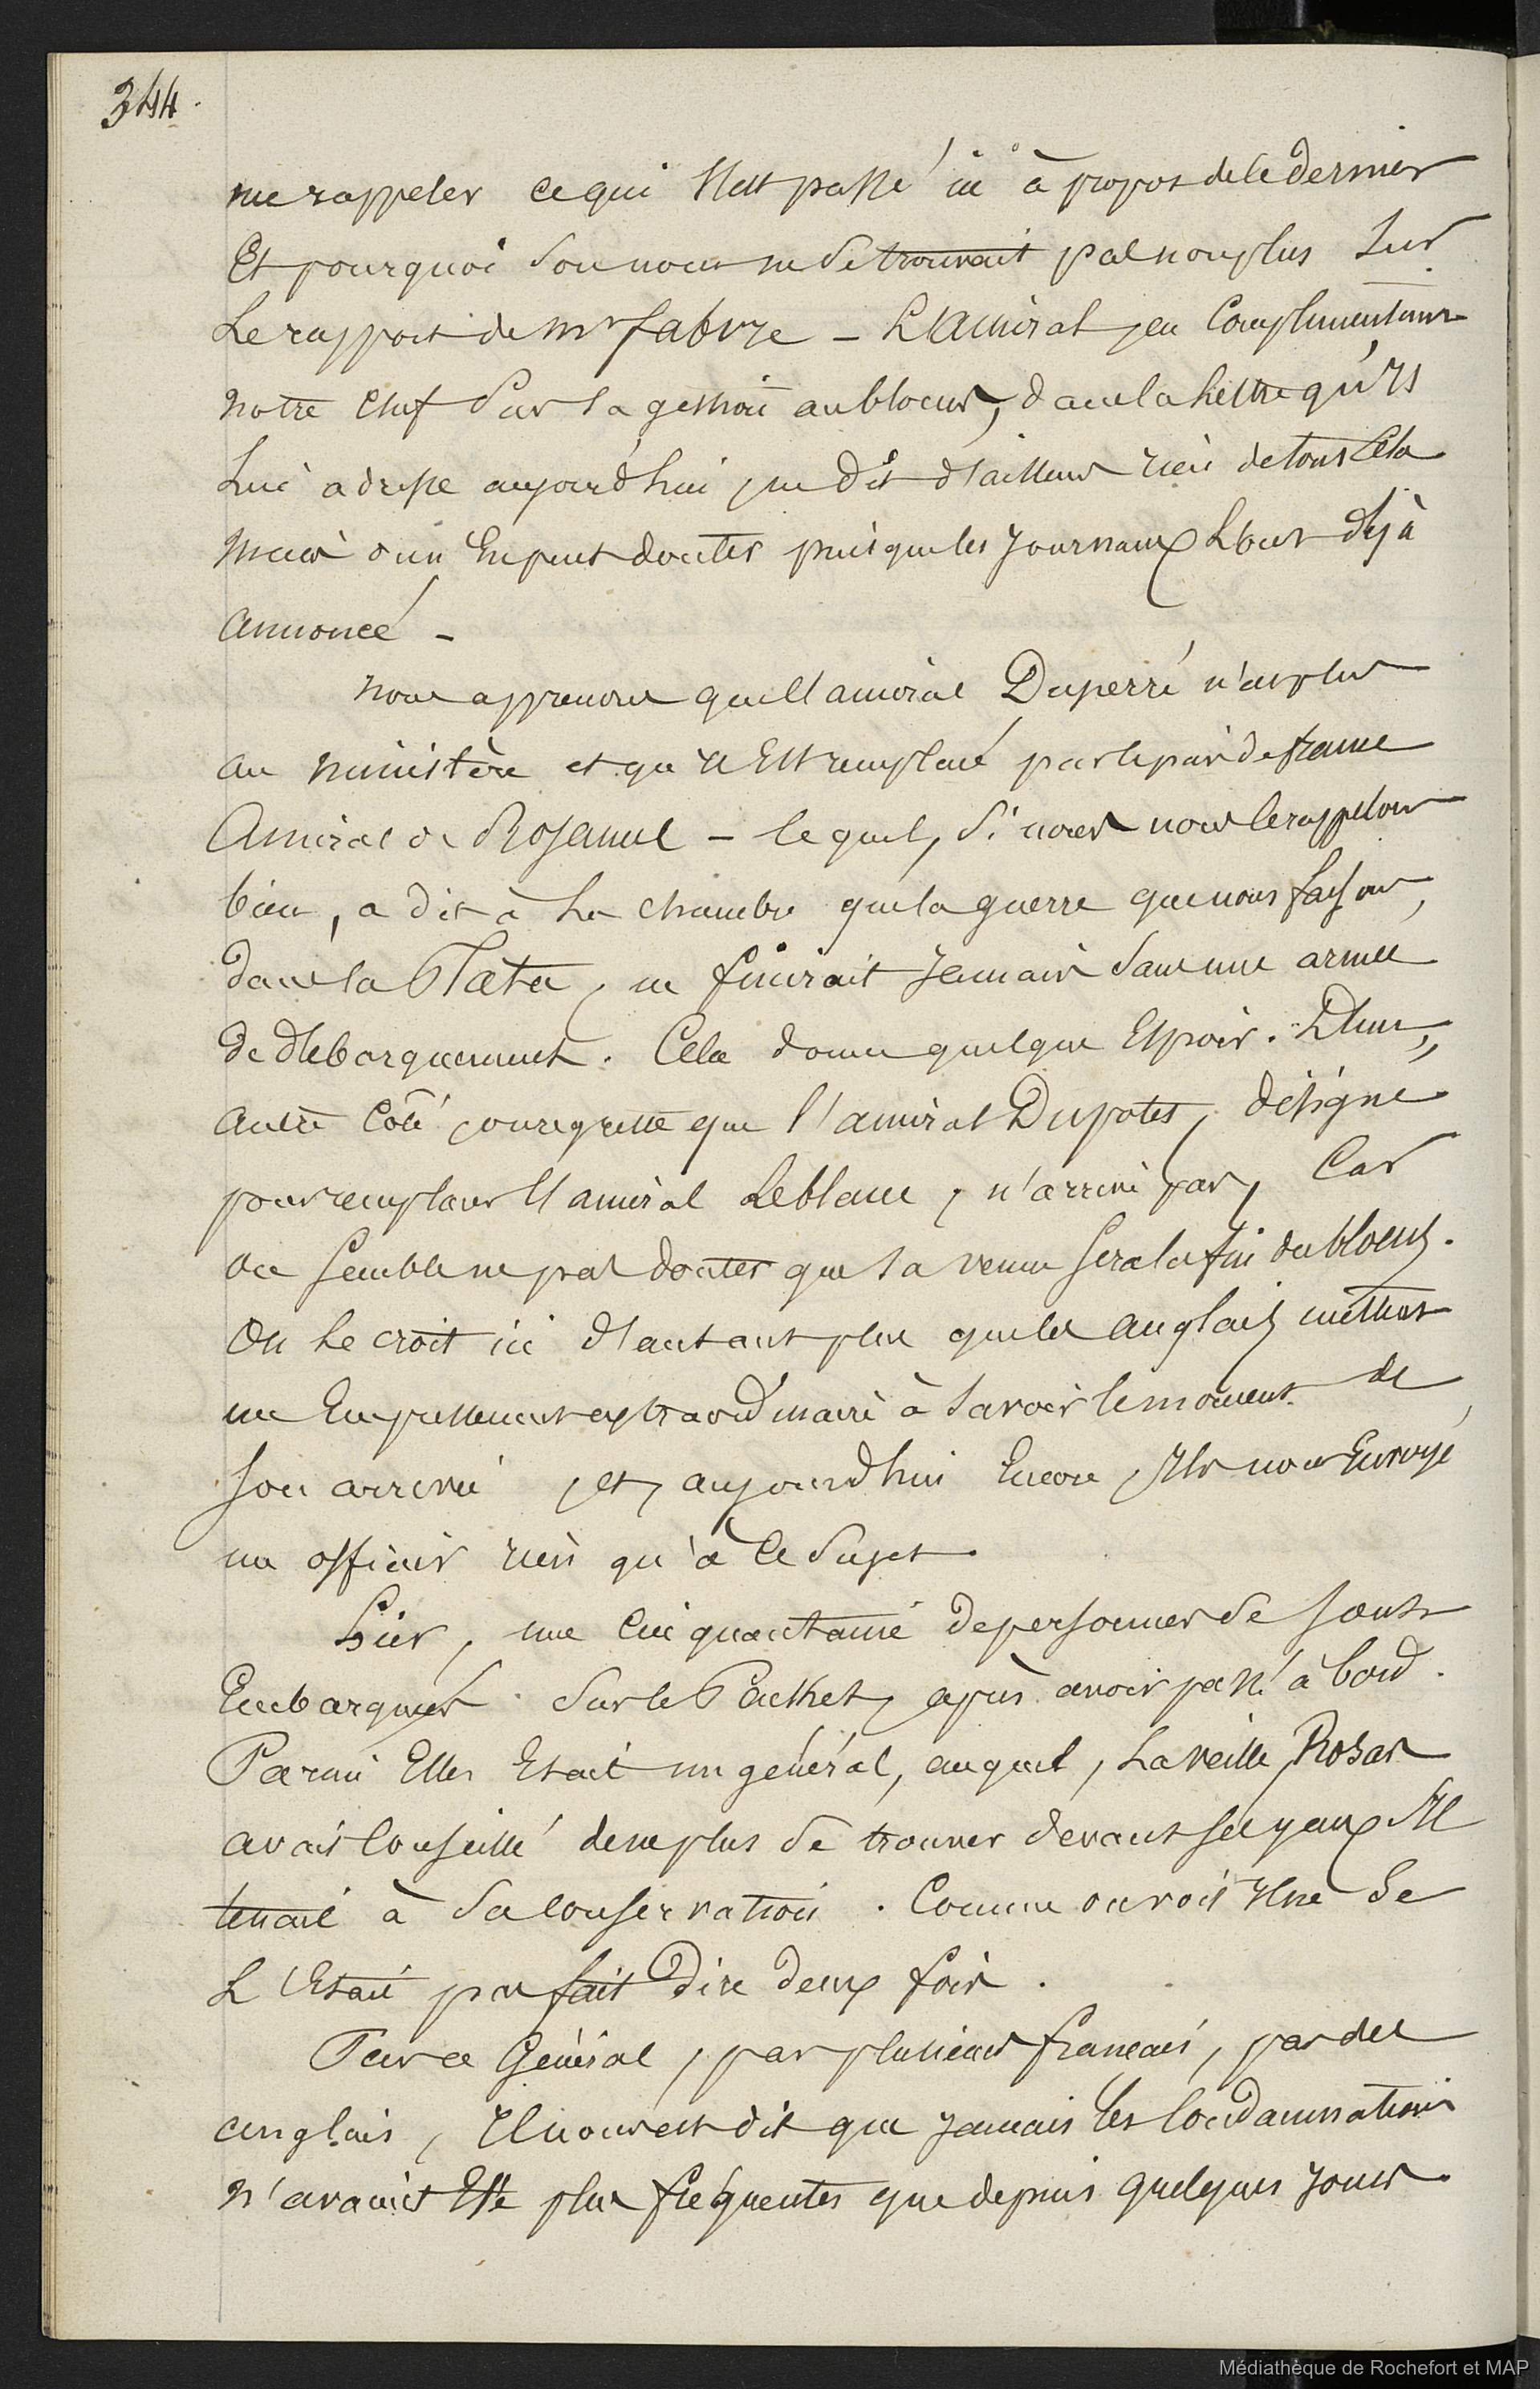 344.
me rappeler ce qui s'est passé ici à propos de ce dernier
Et pourquoi son nom ne se trouvait pas non plus sur
Le rapport de Mr fabvre – L'amiral, en Complimentant
notre chef sur sa gestion au blocus, dans la Lettre qu'Il
Lui adresse aujourd'hui, ne dit d'ailleurs rien de tout cela
mais on n'En peut douter puisque les Journaux L'ont déjà
annoncé –
nous apprenons que l'amiral Duperré n'est plus
au ministère et qu'Il Est remplacé par le pair de france
Amiral de Rosamel – lequel, si nous nous le rappelons
bien, a dit à La chambre que la guerre que nous faisons,
dans la Plata, ne finirait Jamais sans une armée
de débarquement. Cela donne quelque Espoir. D'un
autre Côté, on regrette que l'amiral Dupotet, désigné
pour remplacer l'amiral Leblanc, n'arrive pas, Car
on semble ne pas douter que sa venue sera la fin du blocus.
On Le croit ici d'autant plus que les anglais mettent
un Empressement extraordinaire à savoir le moment de
son arrivée, et, aujourd'hui Encore, Ils nous Envoyé
un officier rien qu'à Ce sujet.
Hier, une Cinquantaine de personnes se sont
Embarqués sur le Packet, après avoir passé à bord.
Parmi Elles Etait un général, auquel, La veille, Rosas
avait Conseillé de ne plus se trouver devant ses yeux Il
tenait à sa Conservation. Comme on voit Il ne se
L'Etait pas fait Dire deux fois.
Par ce Général, par plusieurs français, par des
anglais, Il nous est dit que Jamais Les Condamnations
n'avaient Eté plus fréquentes que depuis quelques Jours
Médiathèque de Rochefort et MAP